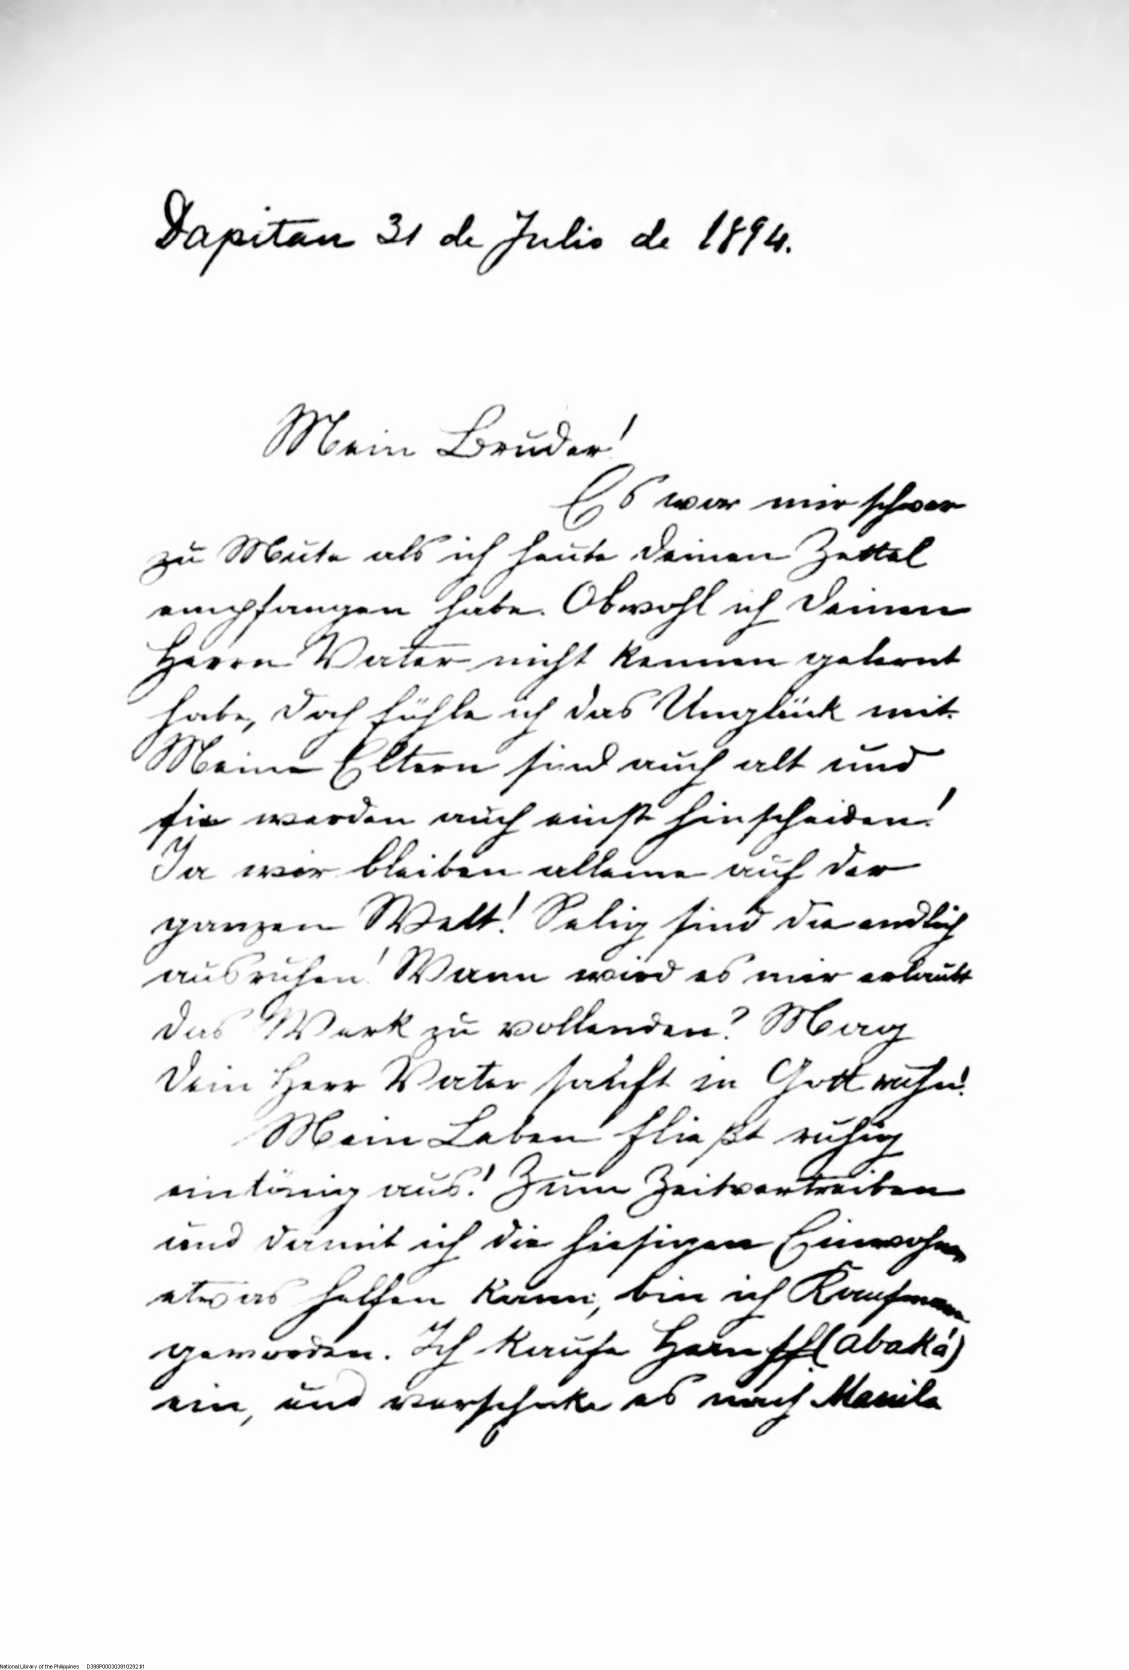 Dapitan 31 de Julio de 1894.
Mein Bruder!
Es war mir schwer
zu Mute als ich heute deinen Zettel
empfangen habe. Obwohl ich deinen
Herrn Vater nicht kennen gelernt
habe, doch fühle ich das Unglück mit.
Meine Eltern sind auch alt und
sie werden auch einst hinscheiden!
Ja wir bleiben alleine auf der
ganzen Welt! Selig sind die endlich
ausruhen! Wann wird es mir erlaubt
das Werk zu vollenden? Mag
Dein Herr Vater sanft in Gott ruhn!
Mein Leben fließt ruhig
eintönig aus! Zum Zeitvertreiben
und damit ich die hiesigen Einwohner
etwas helfen kann, bin ich Kaufmann
geworden. Ich kaufe (abaká)
ein, und verschicke es nach Manila
National Library of the Philippines